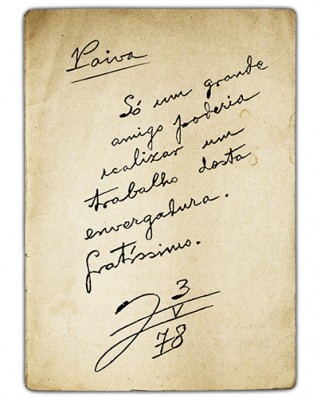 Paiva
Só um grande
amigo poderia
realizar um
trabalho desta
envergadura.
Gratíssimo.
3
V
78